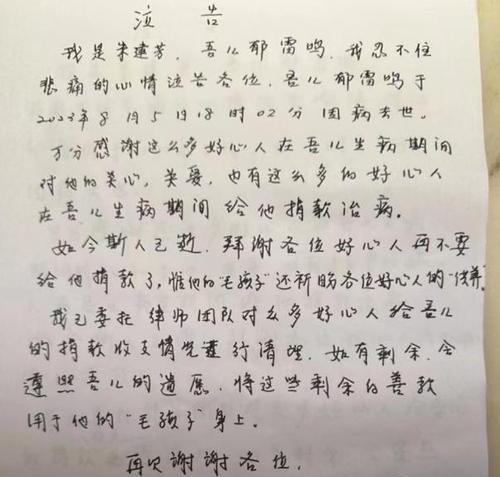 泣 告
我是朱建芳，吾儿郁雷鸣，我忍不住
悲痛的心情泣告各位，吾儿郁雷鸣于
2023年8月5日18时02分因病去世。
万分感谢这么多好心人在吾儿生病期间
对他的关心，关爱，也有这么多的好心人
在吾儿生病期间给他捐款治病。
如今斯人已逝，拜谢各位好心人再不要
给他捐款了，惟他的"毛孩子"还祈盼各位好心人的"供养"。
我已委托律师团队对么多好心人给吾儿
的捐款收支情况进行清理，如有剩余，会
遵照吾儿的遗愿，将这些剩余的善款
用于他的"毛孩子"身上。
再次谢谢各位，